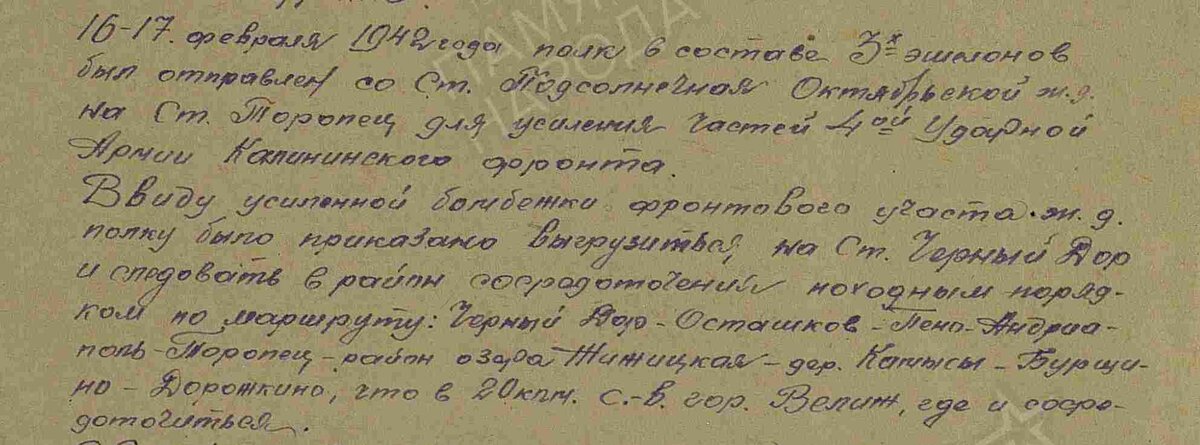 16-17. февраля 1942 года полк в составе 3х эшелонов
был отправлен со Ст. Подсолнечная Октябрьской ж.д.
на Ст. Торопец для усиления частей 4ой Ударной
Армии Калининского фронта.
Ввиду усиленной бомбежки фронтового участа ж.д.
полку было приказано выгрузиться, на Ст. Черный Дор
и следовать в район сосредоточений походным поряд-
ком по маршруту: Черный Дор - Осташков - Пено - Андриа-
поль - Торопец - район озера Жижицкая - дер. - Бурци-
но - Дорожкино, что в 20 клм. с.-в. гор. Велиж, где и сосре-
доточиться.
ПАМЯ
НАРОДА